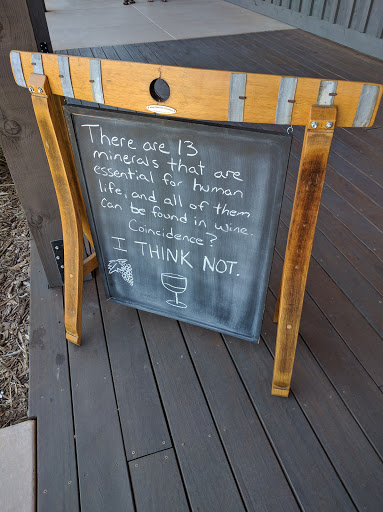 There are 13
minerals that are
essential for human
life, and all of them
can be found in wine.
Coincidence?
I THINK NOT.